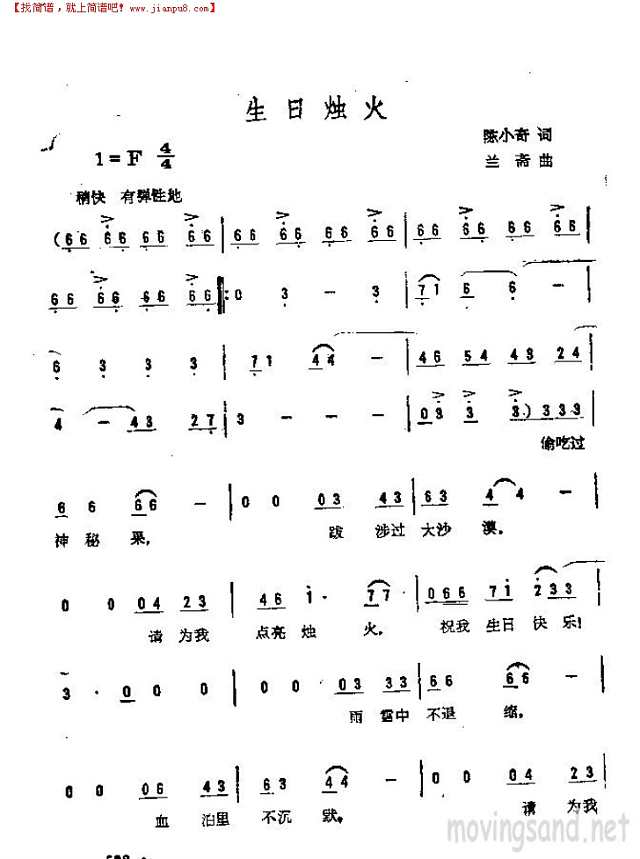 【找简谱，就上简谱吧! www.jianpu8.com】
生日烛火
陈小奇 词
1=F 4/4
兰斋 曲
稍快 有弹性地
(66 66 66 66 | 66 66 66 66 | 66 66 66 66 |
66 66 66 66 |: 0 3 - 3 | 71 6 6 - |
6 3 3 3 | 71 44 - | 46 54 43 24 |
4 - 43 27 | 3 - - - | 03 3 3.) 333 |
偷吃过
6 6 66 - | 0 0 03 43 | 63 4 4 - |
神秘果， 跋 涉过 大沙 漠。
0 0 04 23 | 46 1· 77 | 066 71 233 |
请 为我 点亮 烛 火， 祝我 生日 快乐!
3· 0 0 0 | 0 03 33 43 | 66 66 - |
雨 雪中 不退 缩，
0 0 06 43 | 63 44 - | 0 0 04 23 |
血 泊里 不沉 默。 请 为我
movingsand.net